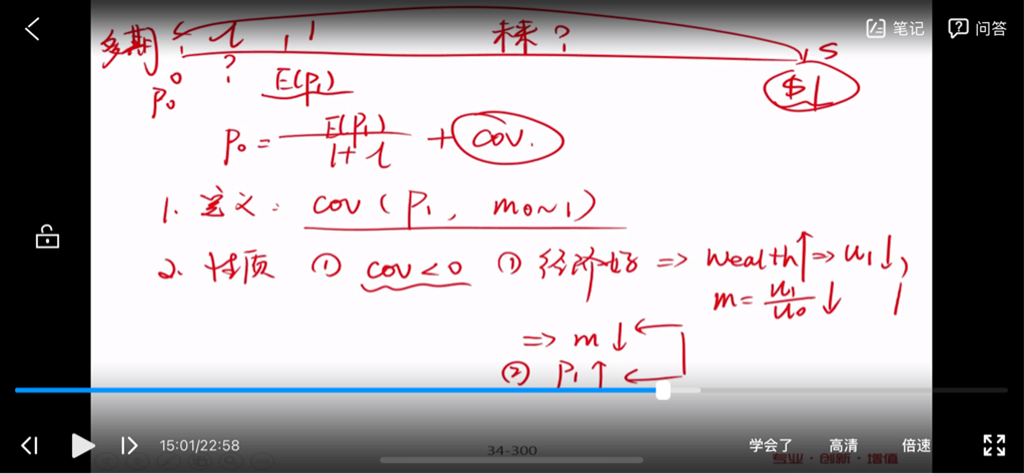 笔记 问答
多期 未来? S
0 ? E(p₁) $1
p₀
p₀ = E(p₁) / 1+r + cov.
1. 定义: cov ( p₁ , m₀~₁ )
2. 性质 ① cov<0 ① 经济好 => Wealth↑ => u₁↓,
m = u₁/u₀ ↓
=> m ↓
② p₁ ↑
15:01/22:58
34-300
学会了 高清 倍速
专业·创新·增值